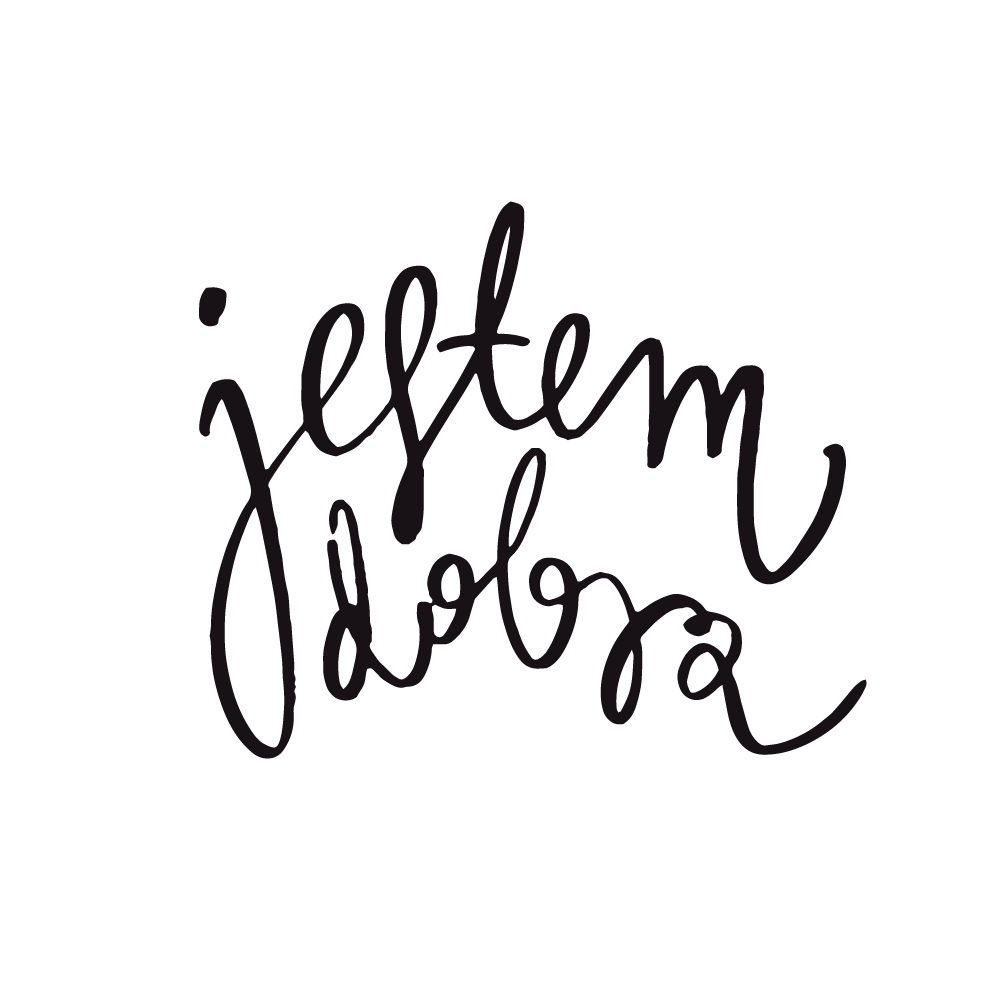 jestem
dobra